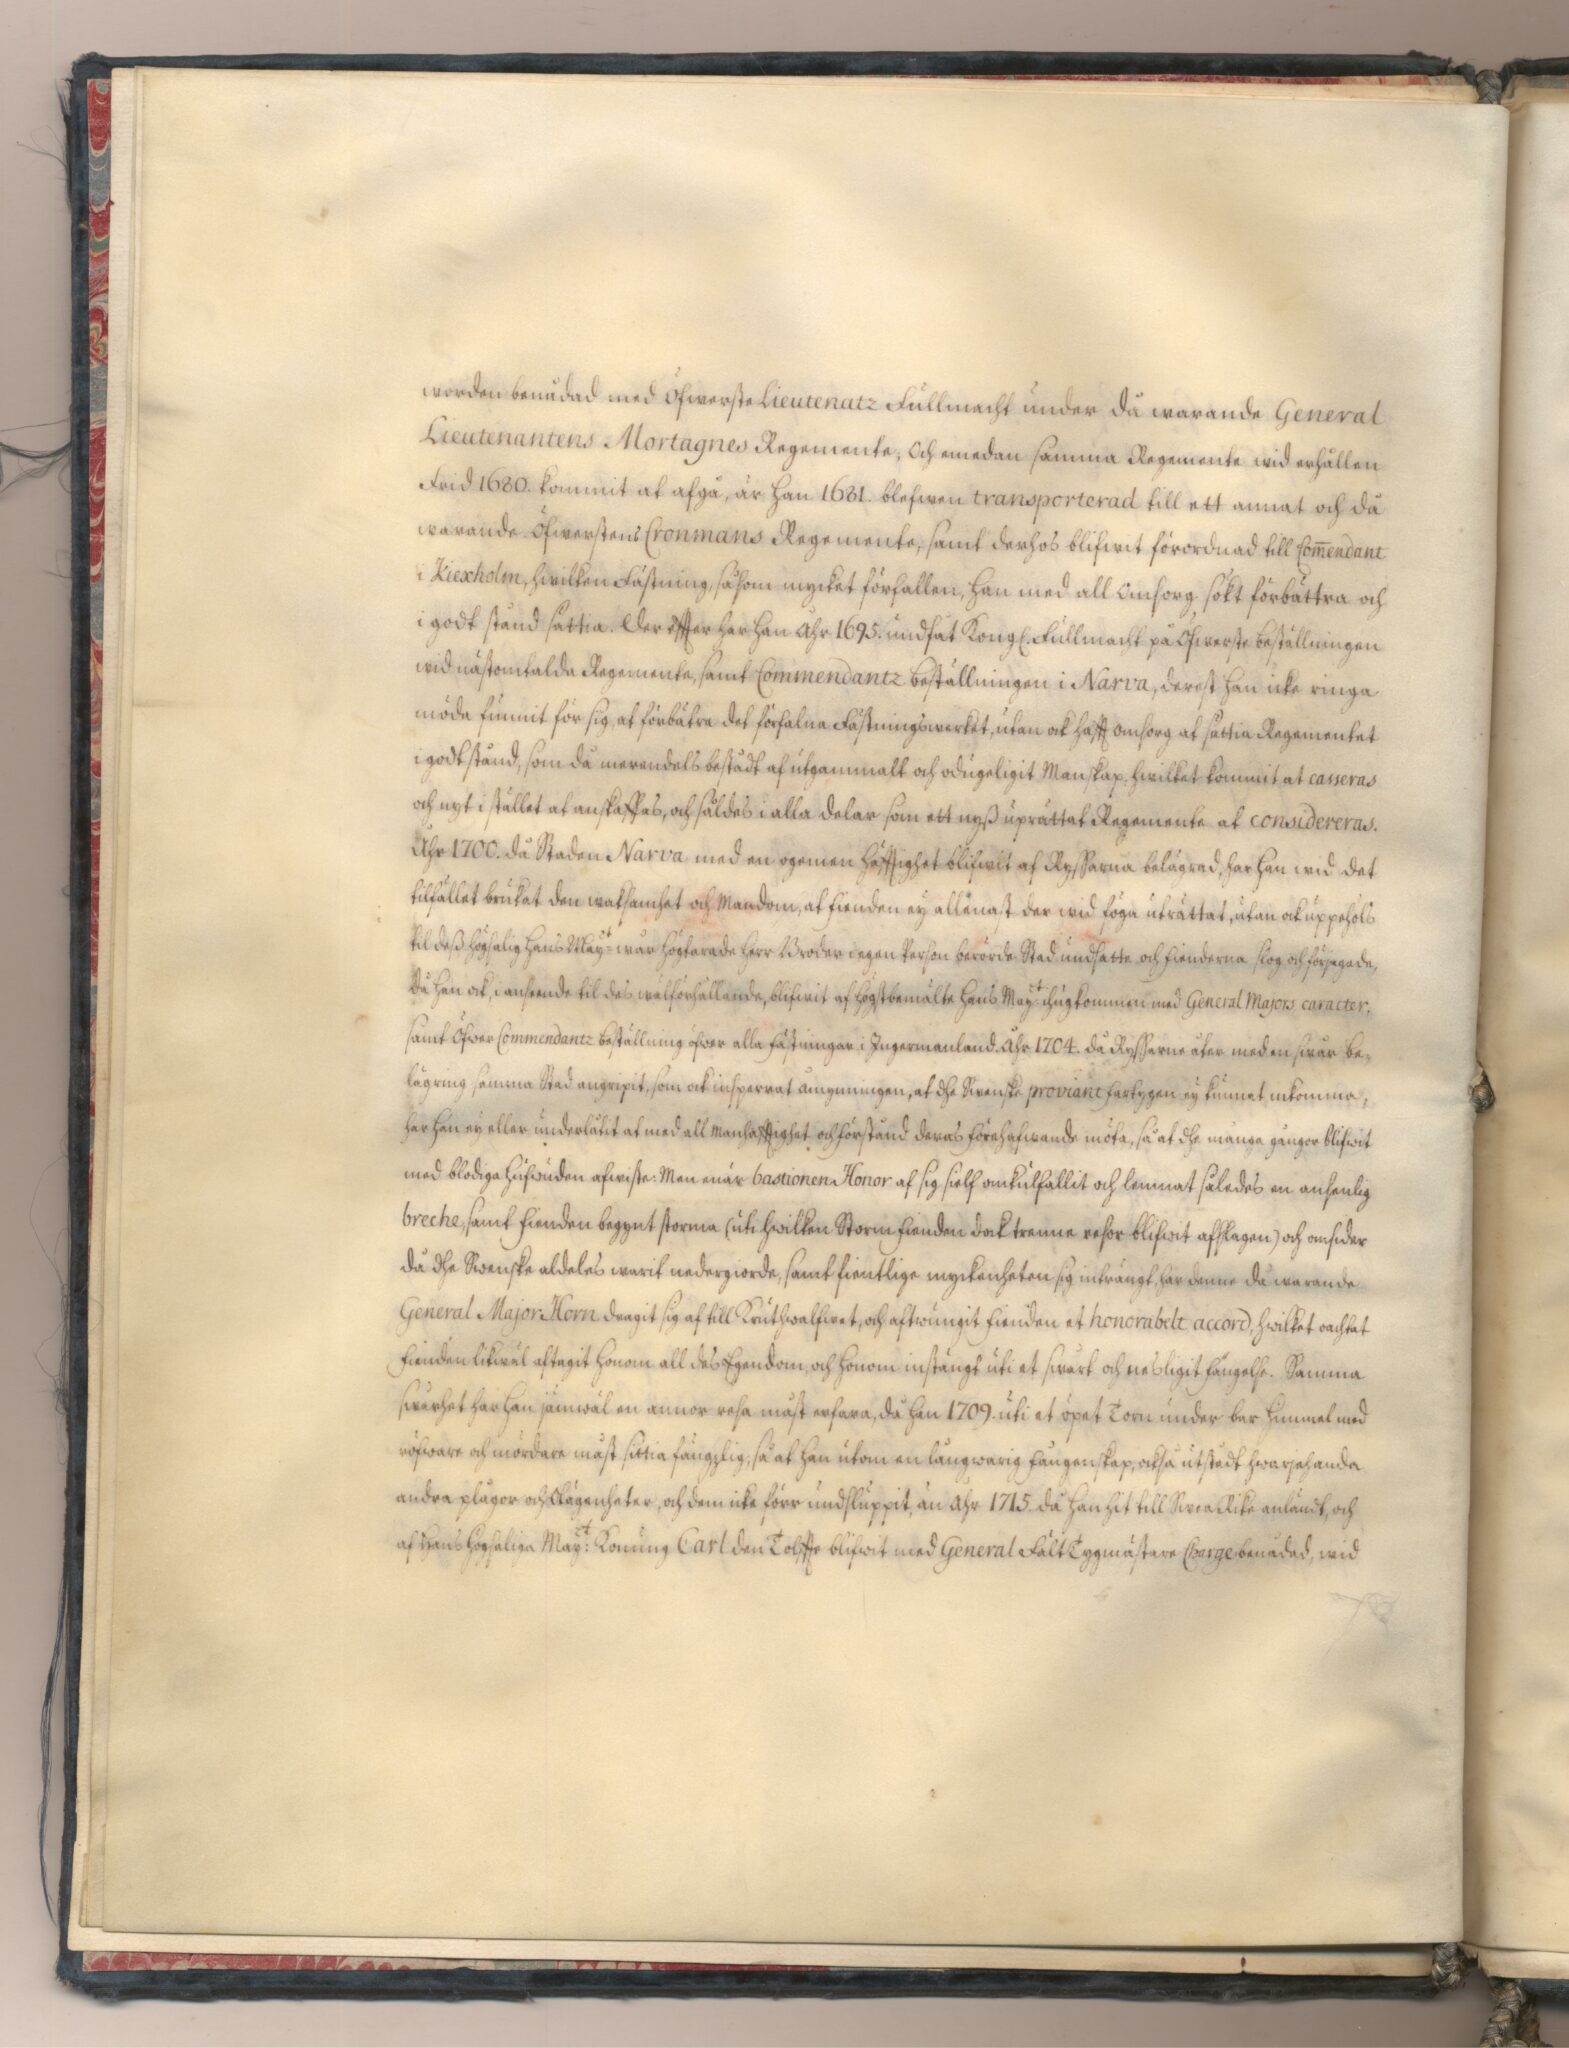 worden benådad med Öfwerste Lieutenatz Fullmacht under då warande General
Lieutenantens Mortagnes Regemente, Och emedan samma Regemente wid erhållen
Frid 1680. kommit at afgå, är han 1681. blefwen transporterad till ett annat och då
warande Öfwerstens Cronmans Regemente, samt derhos blifwit förordnad till Com̅endant
i Kiexholm, hwilken Fästning, såsom mycket förfallen, han med all Omsorg sökt förbättra och
i godt stånd sättia. Der effter har han Åhr 1695. undfåt Kongl. Fullmacht på Öfwerste beställningen
wid nästomtalda Regemente, samt Commendantz beställningen i Narva, derest han icke ringa
möda funnit för sig, at förbättra det förfalna Fästningswerket, utan ock hafft omsorg at sättia Regementet
i godt stånd, som då merendels bestådt af utgammalt och odugeligit Manskap, hwilket kommit at casseras
och nyt i stället at anskaffas, och således i alla delar som ett nyß uprättat Regemente at considereras.
Åhr 1700. då Staden Narva med en ogemen häfftighet blifwit af Ryssarna belägrad, har han wid det
tilfället brukat den waksamhet och Mandom, at fienden ey allenast der wid föga uträttat, utan ock uppehöls
til deß Högsalig Hans May:t wår Högtärade Herr Broder i egen Person berörde Stad undsatte och fienderna slog och förjagade,
då han ock, i anseende til des wälförhållande, blifwit af högstbemälte Hans May:t ihugkommen med General Majors caracter,
samt Öfwer Commendantz beställning öfwer alla Fästningar i Ingermanland. Åhr 1704. då Ryssarne åter med en swår be-
lägring samma Stad angripit, som ock inspärrat åmynningen, at dhe Swenske proviant fartygen ey kunnat inkomma,
har han ey eller underlåtit at med all Manhafftighet och förstånd deras förehafwande möta, så at dhe många gångor blifwit
med blodiga hufwuden afwiste: Men enär bastionen Honor af sig sielf omkulfallit och lemnat således en ansenlig
breche, samt fienden begynt storma (uti hwilken Storm fienden dock trenne resor blifwit afslagen) och omsider
då dhe Swenske aldeles warit nedergiorde, samt fientlige myckenheten sig inträngt, har denne då warande
General Major Horn dragit sig af till Kruthwalfwet, och aftwungit fienden et honorabelt accord, hwilket oachtat
fienden likwäl aftagit honom all des Egendom, och honom instängt uti et swårt och nesligit fängelse. Samma
swårhet har han jämwäl en annor resa måst erfara, då han 1709. uti et öpet Torn under bar himmel med
röfware och mördare måst sittia fängzlig, så at han utom en långwarig fångenskap, också utstådt hwarjehanda
andra plågor och Olägenheter, och dem icke förr undsluppit, än Åhr 1715. då han hit till Swea Rike anländt, och
af Hans Högsaliga May:t Konung Carl den Tolffte blifwit med General Fält Tygmästare Charge benådad, wid